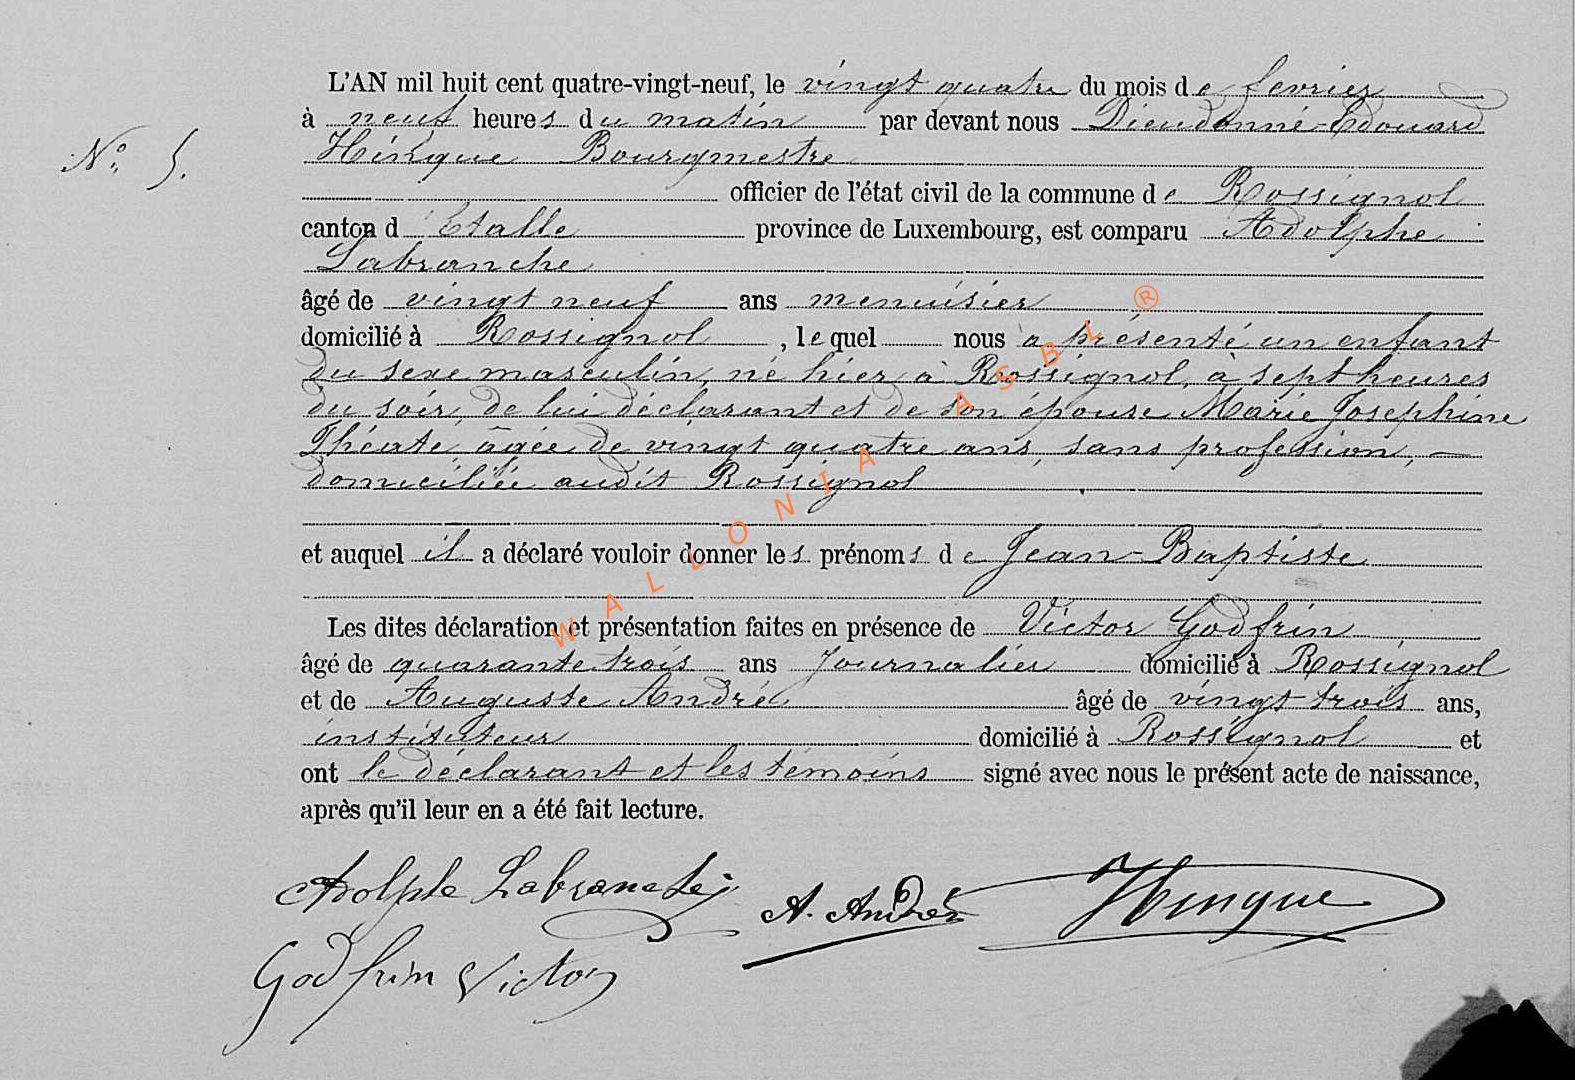 L'AN mil huit cent quatre-vingt-neuf, le vingt quatre du mois de fevrier
à neuf heures du matin par devant nous Dieudonné-Edouard
N° 5.
Hinque Bourgmestre
officier de l'état civil de la commune de Rossignol
canton d'Etalle province de Luxembourg, est comparu Adolphe
Labranche
âgé de vingt neuf ans menuisier
domicilié à Rossignol, lequel nous a présenté un enfant
du sexe masculin, né hier à Rossignol, à sept heures
du soir, de lui déclarant et de son épouse Marie Josephine
Théate, âgée de vingt quatre ans, sans profession, —
domiciliée audit Rossignol
et auquel il a déclaré vouloir donner les prénoms de Jean-Baptiste
Les dites déclaration et présentation faites en présence de Victor Godfrin
âgé de quarante trois ans journalier domicilié à Rossignol
et de Auguste André âgé de vingt trois ans,
instituteur domicilié à Rossignol et
ont le déclarant et les témoins signé avec nous le présent acte de naissance,
après qu'il leur en a été fait lecture.
Adolphe Labranche A. André Hinque
Godfrin Victor
WALLONIA ASBL ®